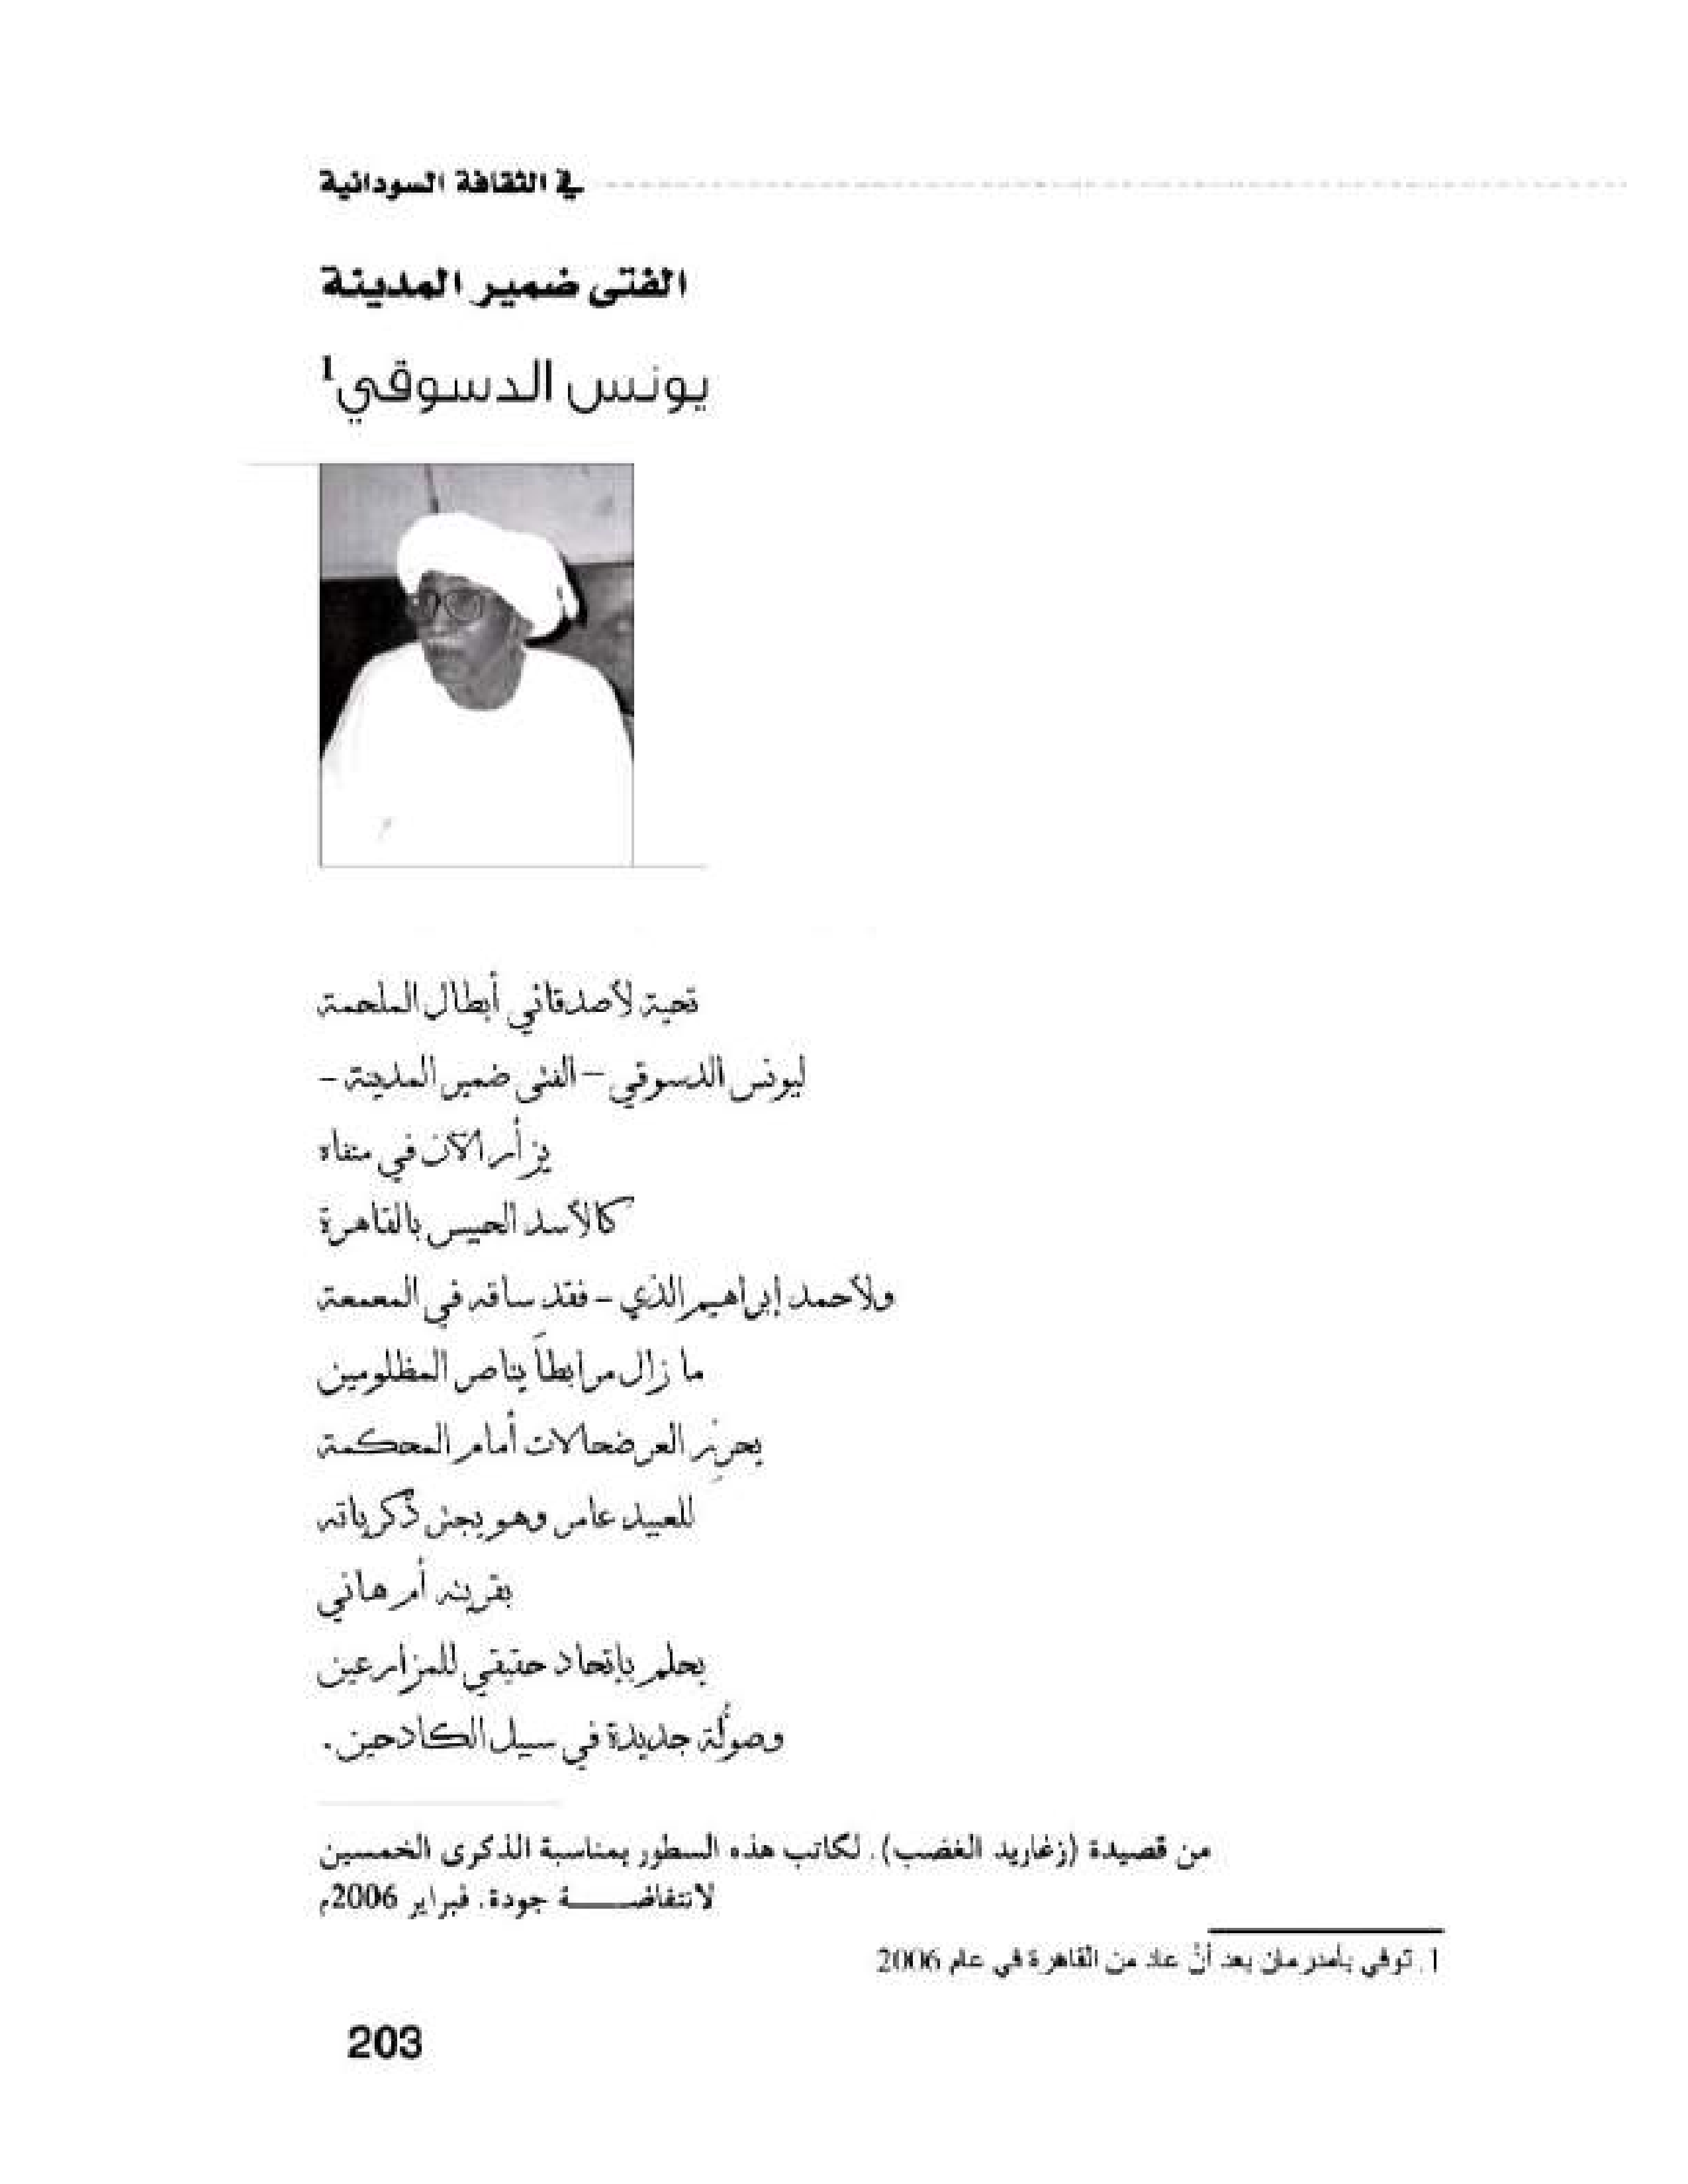 في الثقافة السودانية
الفتى ضمير المدينة
يونس الدسوقي1
تحية لأصدقائي أبطال الملحمة
ليونس الدسوقي – الفتى ضمير المدينة –
يزأر الآن في منفاه
كالأسد الحبيس بالقاهرة
ولأحمد إبراهيم الذي – فقد ساقه في المعمعة
ما زال مرابطاً يناصر المظلومين
يحرِّر العرضحالات أمام المحكمة
للعبيد عامر وهو يجتر ذكرياته
بقرية أم هاني
يحلم بإتحاد حقيقي للمزارعين
وصولة جديدة في سبيل الكادحين.
من قصيدة (زغاريد الغضب). لكاتب هذه السطور بمناسبة الذكرى الخمسين
لانتفاضـــــة جودة. فبراير 2006م
1. توفي بأمدرمان بعد أنْ عاد من القاهرة في عام 2006
203